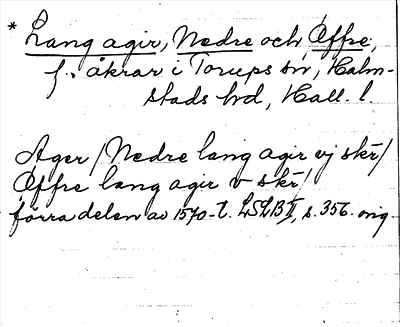 * Lang agir, Nedre och Øffre,
f. åkrar i Torups sn, Halm-
stads hd, Hall. l.
Ager / Nedre lang agir vj skr /
Øffre lang agir v skr /
förra delen av 1570-t. LSLB II, s. 356. orig.